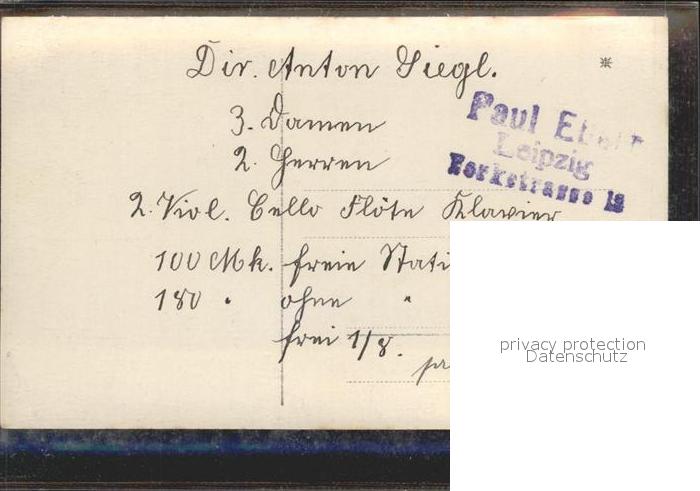 Dir. Anton Siegl.
3. Damen
2. Herren
2. Viol. Cello Flöte Klavier
100 Mk. freie Stati
180 " ohne "
frei 1/8.
Paul
Leipzig
privacy protection
Datenschutz